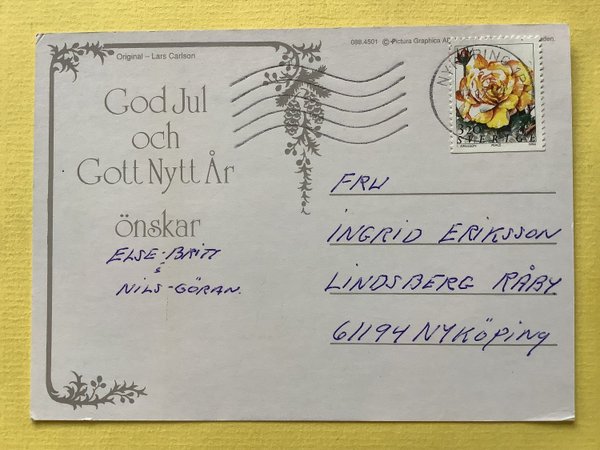 Original – Lars Carlson
089.4501 © Pictura Graphica AB
God Jul
och
Gott Nytt År
önskar
ELSE-BRITT
&
NILS-GÖRAN.
NYKÖPING
3.20
SVERIGE
FRU
INGRID ERIKSSON
LINDSBERG RÅBY
61194 NYKÖPING